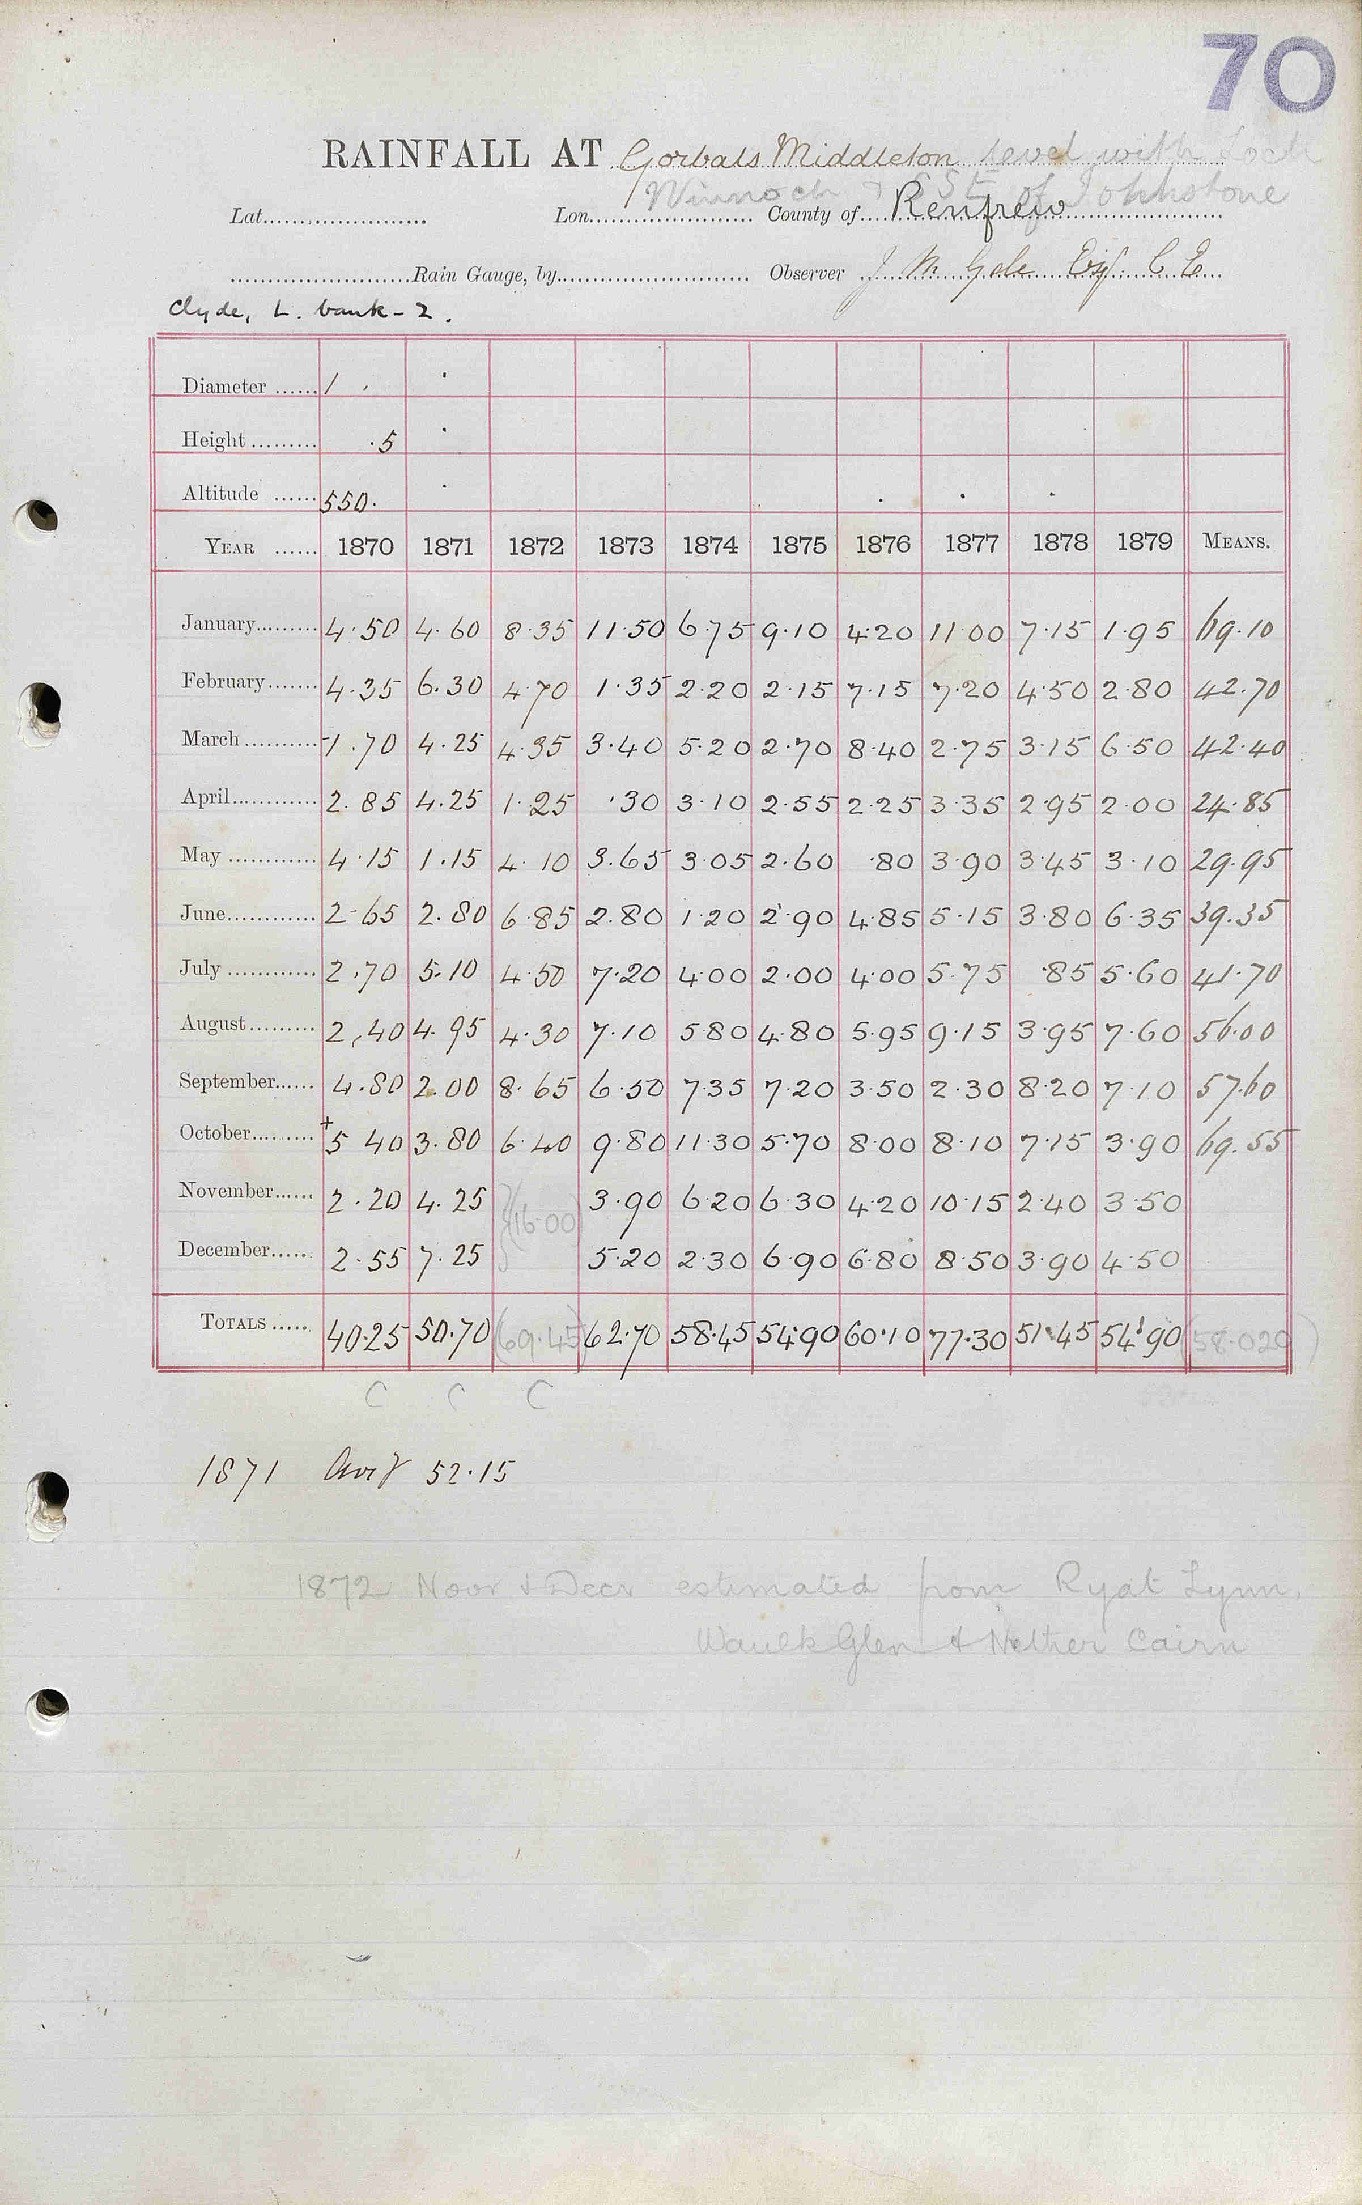 70
RAINFALL AT Gorbals Middleton level with Loch
Winnoch & SSE of Johnstone
Lat. Lon. County of Renfrew
Rain Gauge, by Observer J M Gale Esqr. C E.
Clyde, L. bank - 2.
Diameter 1
Height .5
Altitude 550.
YEAR 1870 1871 1872 1873 1874 1875 1876 1877 1878 1879 MEANS.
January 4.50 4.60 8.35 11.50 6.75 9.10 4.20 11.00 7.15 1.95 69.10
February 4.35 6.30 4.70 1.35 2.20 2.15 7.15 7.20 4.50 2.80 42.70
March 1.70 4.25 4.35 3.40 5.20 2.70 8.40 2.75 3.15 6.50 42.40
April 2.85 4.25 1.25 .30 3.10 2.55 2.25 3.35 2.95 2.00 24.85
May 4.15 1.15 4.10 3.65 3.05 2.60 .80 3.90 3.45 3.10 29.95
June 2.65 2.80 6.85 2.80 1.20 2.90 4.85 5.15 3.80 6.35 39.35
July 2.70 5.10 4.50 7.20 4.00 2.00 4.00 5.75 .85 5.60 41.70
August 2.40 4.95 4.30 7.10 5 80 4.80 5.95 9.15 3.95 7.60 56.00
September 4.80 2.00 8.65 6.50 7.35 7.20 3.50 2.30 8.20 7.10 57.60
October +5 40 3.80 6.40 9.80 11.30 5.70 8.00 8.10 7.15 3.90 69.55
November 2.20 4.25 3.90 6.20 6.30 4.20 10.15 2.40 3.50
(16.00)
December 2.55 7.25 5.20 2.30 6.90 6.80 8.50 3.90 4.50
TOTALS 40.25 50.70 (69.45) 62.70 58.45 54.90 60.10 77.30 51.45 54.90 (58.020)
C C C
1871 52.15
1872 Novr & Decr estimated from Ryat Lynn,
Waulk Glen & Nether Cairn